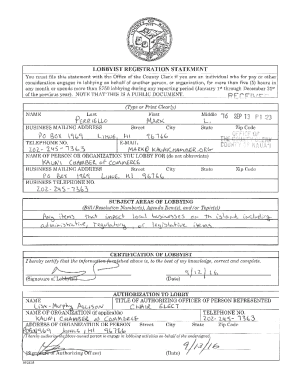 LOBBYIST REGISTRATION STATEMENT
You must file this statement with the Office of the County Clerk if you are an individual who for pay or other
consideration engages in lobbying on behalf of another person, or organization, for more than five (5) hours in
any month or spends more than $750 lobbying during any reporting period (January 1st through December 31st
of the previous year). NOTE THAT THIS IS A PUBLIC DOCUMENT.
(Type or Print Clearly)
NAME Last First Middle '16 SEP 13 P1:23
PERRIELLO MARK L.
BUSINESS MAILING ADDRESS Street City State Zip Code
PO BOX 1969 LIHUE, HI 96766
TELEPHONE NO. E-MAIL
202-245-7363 MARK@KAUAICHAMBER.ORG
NAME OF PERSON OR ORGANIZATION YOU LOBBY FOR (do not abbreviate)
KAUAI CHAMBER OF COMMERCE
BUSINESS MAILING ADDRESS Street City State Zip Code
PO BOX 1969 LIHUE, HI 96766
BUSINESS TELEPHONE NO.
202-245-7363
SUBJECT AREAS OF LOBBYING
(Bill/Resolution Number(s), Agenda Item(s), and/or Topic(s))
Any items that impact local businesses on the island including
administrative, regulatory, or legislative items.
CERTIFICATION OF LOBBYIST
I hereby certify that the information furnished above is, to the best of my knowledge, correct and complete.
9/12/16
(Signature of Lobbyist) (Date)
AUTHORIZATION TO LOBBY
NAME TITLE OF AUTHORIZING OFFICER OF PERSON REPRESENTED
ALLISON CHAIR ELECT
NAME OF ORGANIZATION (if applicable) TELEPHONE NO.
KAUAI CHAMBER OF COMMERCE 202-245-7363
ADDRESS OF ORGANIZATION OR PERSON Street City State Zip Code
LIHUE HI 96766
I hereby authorize the above named person to engage in lobbying on behalf of the undersigned.
9/12/16
(Signature of Authorizing Officer) (Date)